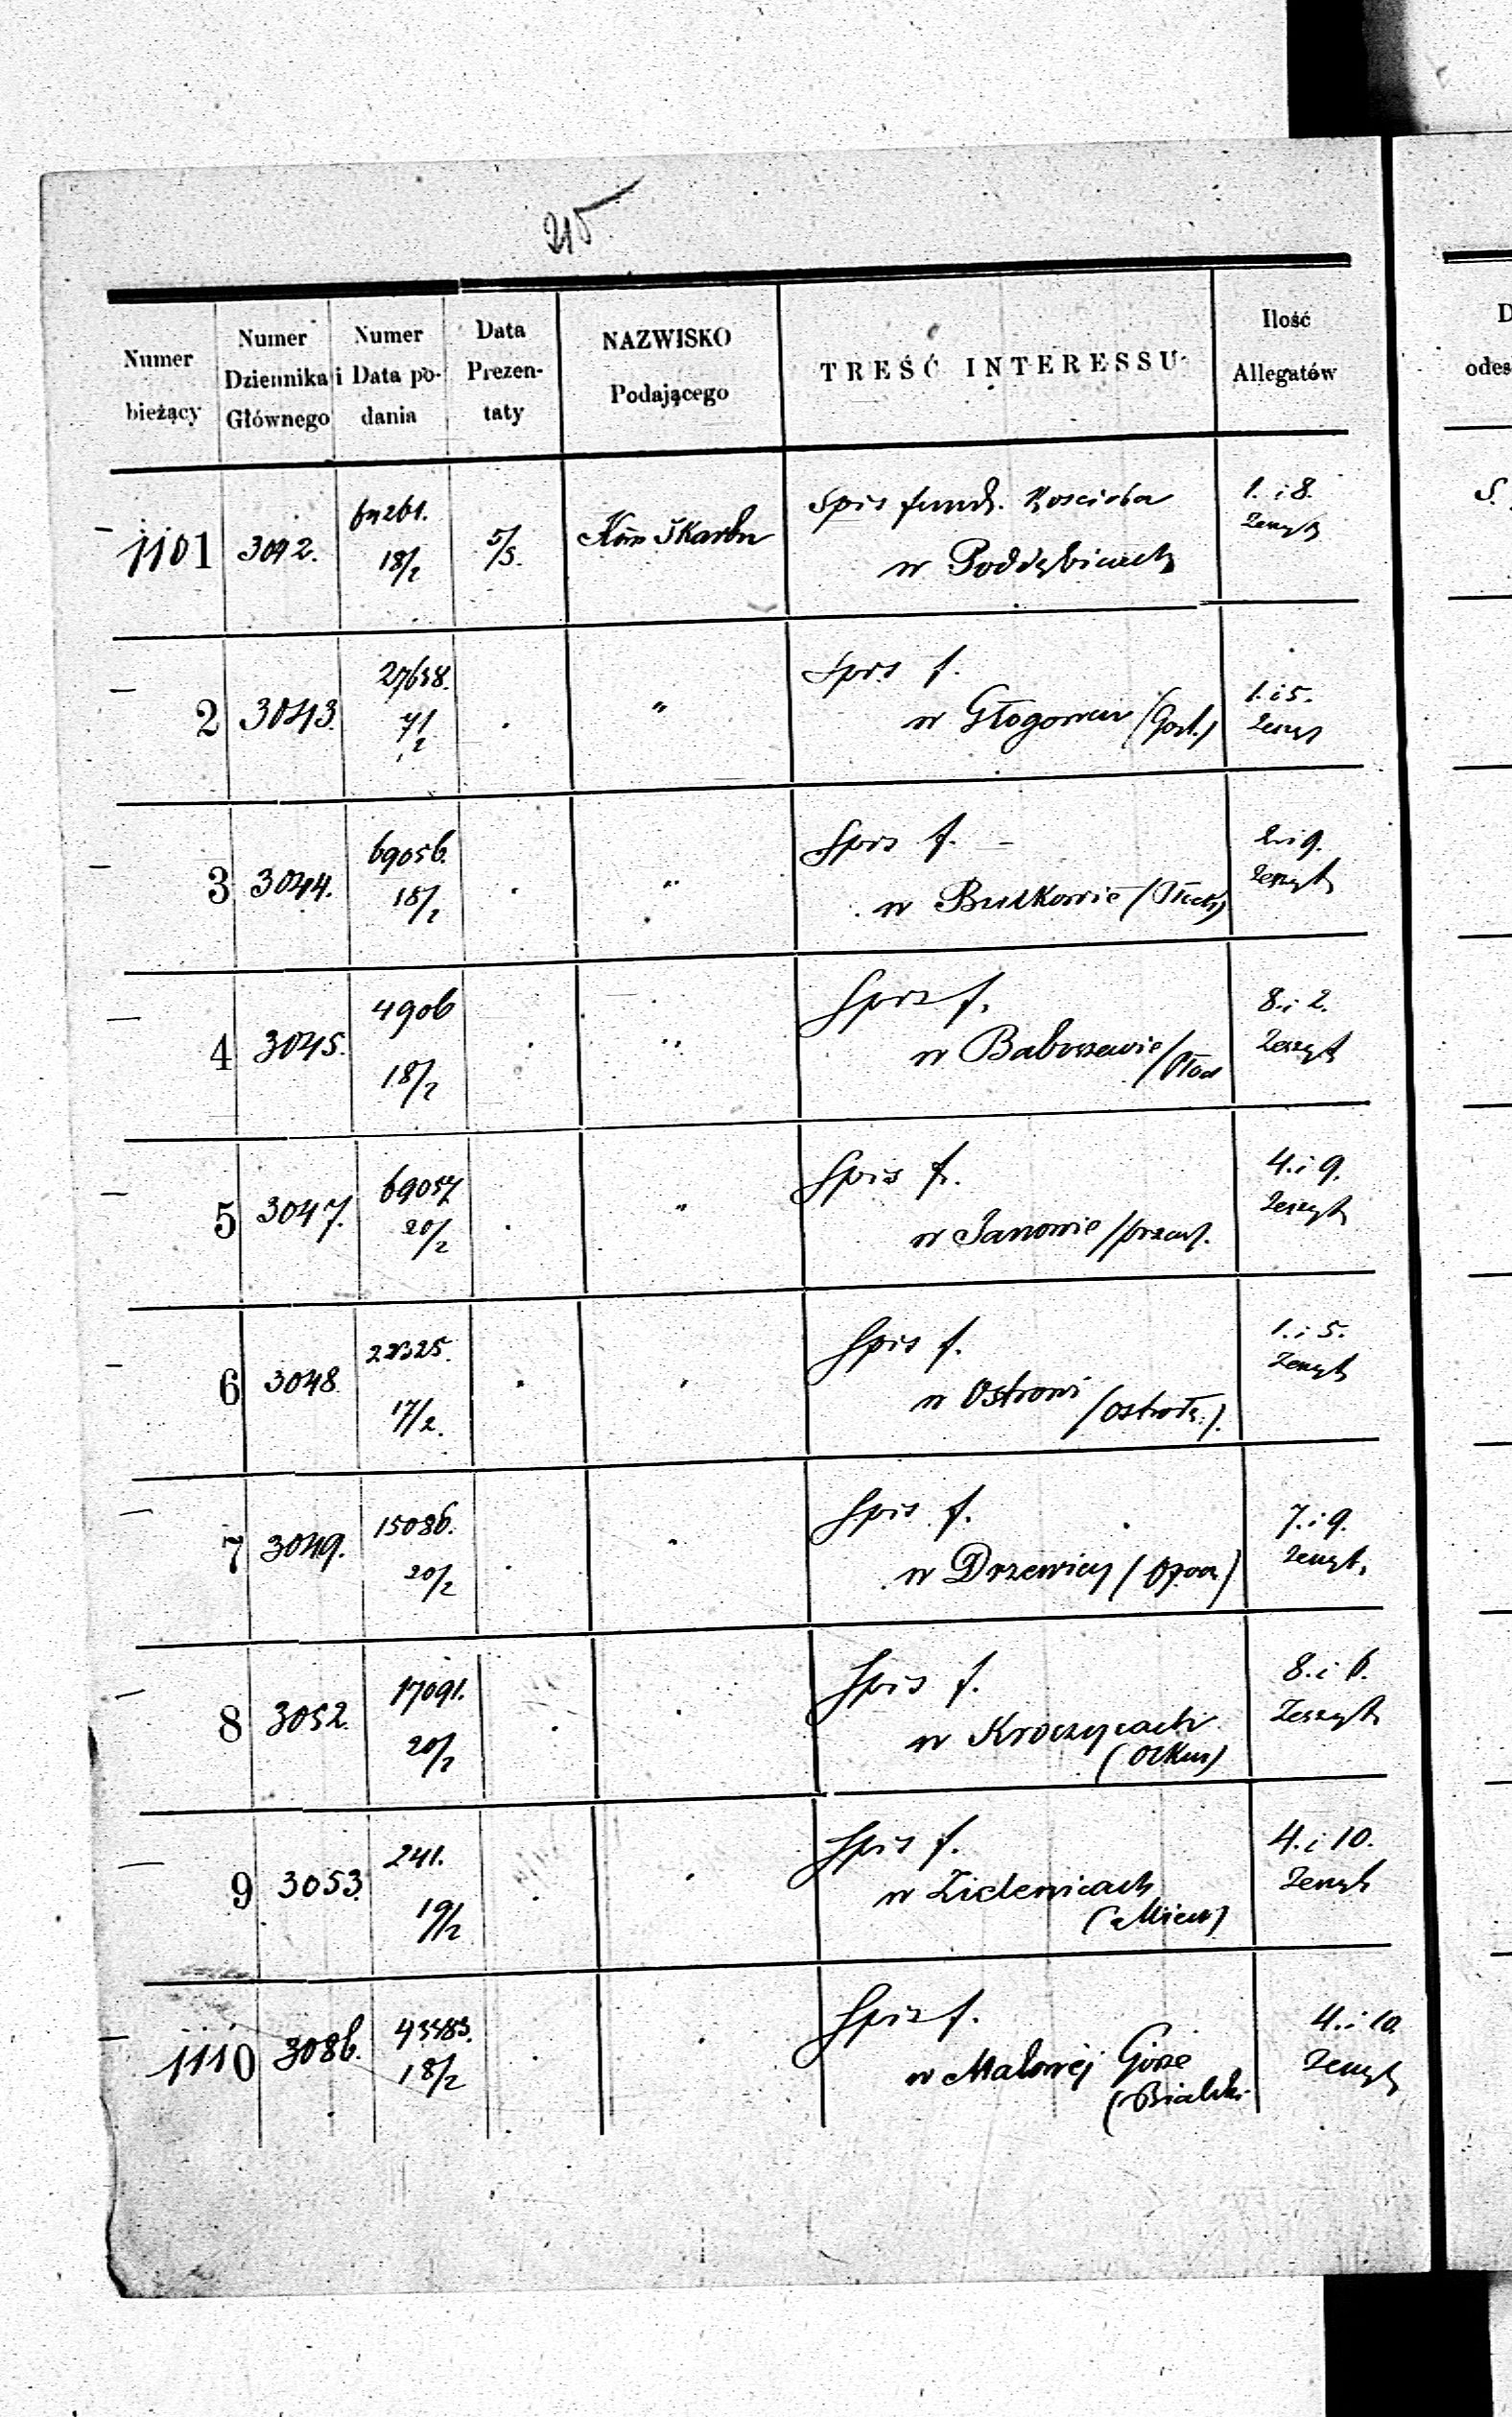 215
Numer bieżący | Numer Dziennika Głównego | Numer i Data podania | Data Prezentaty | NAZWISKO Podającego | TREŚĆ INTERESSU | Ilość Allegatów
1101 3042. 18/2 5/5. Kom Skarbu Spis fund. Kościoła w Poddębicach 1. i 8. Zeszyt
2 3043. 27638. 7/2 " Spis f. w Głogowcu (Gost.) 1. i 5. Zeszyt
3 3044. 69056. 18/2 " Spis f. w (Płock) 2. i 9. Zeszyt
4 3045. 4906 18/2 " Spis f. w Baboszewie (Płock 8. i 2. Zeszyt
5 3047. 69057. 20/2 " Spis f. w Janowie (przas. 4. i 9. Zeszyt
6 3048. 17/2. Spis f. w Ostrowi (Ostrołę.). 1. i 5. Zeszyt
7 3049. 15086. 20/2 Spis f. w Drzewicy (Opocz) 7. i 9. Zeszyt
8 3052. 17091. 20/2 Spis f. w Kroczycach (Olkus) 8. i 6. Zeszyt
9 3053. 241. 19/2 Spis f. w Zielenicach (Miech) 4. i 10. Zeszyt
1110 3086. 18/2 Spis f. w Malowéj Górze (Bialski 4. i 10. Zeszyt
D
odes
S.